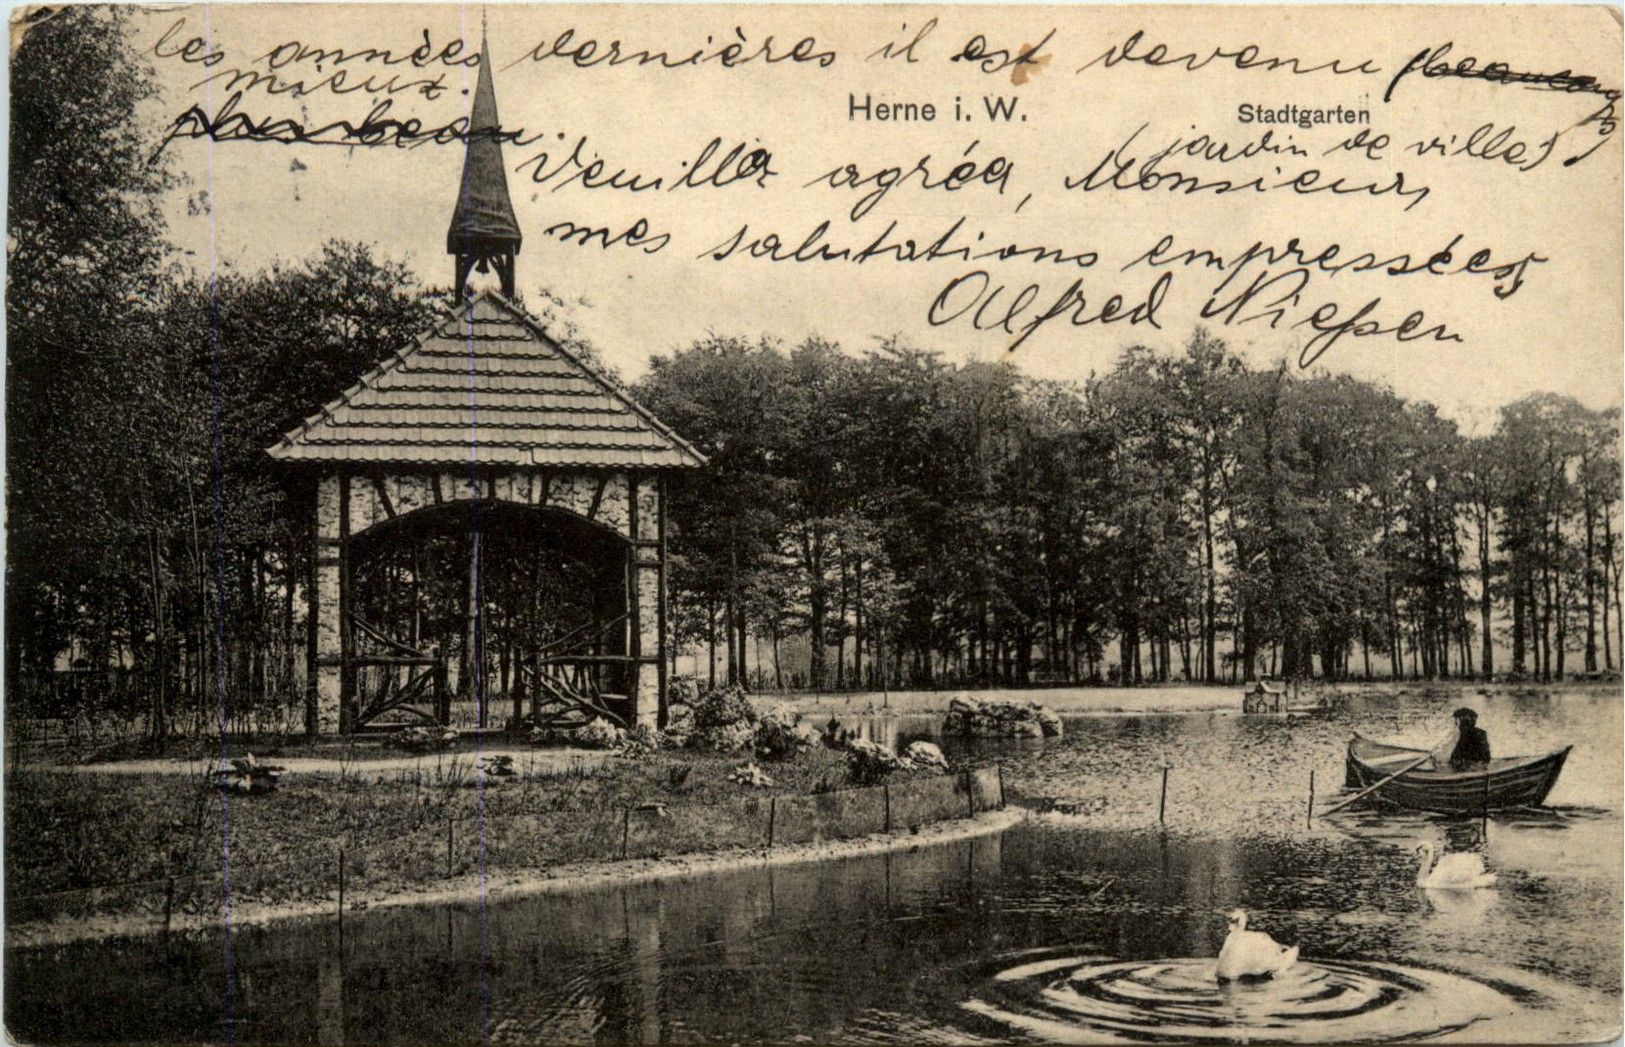 les années dernières il est devenu beaucoup
mieux.
plus beau.
Herne i. W. Stadtgarten
(jardin de ville)
Veuillez agréer, Monsieur,
mes salutations empressées,
Alfred Nießen